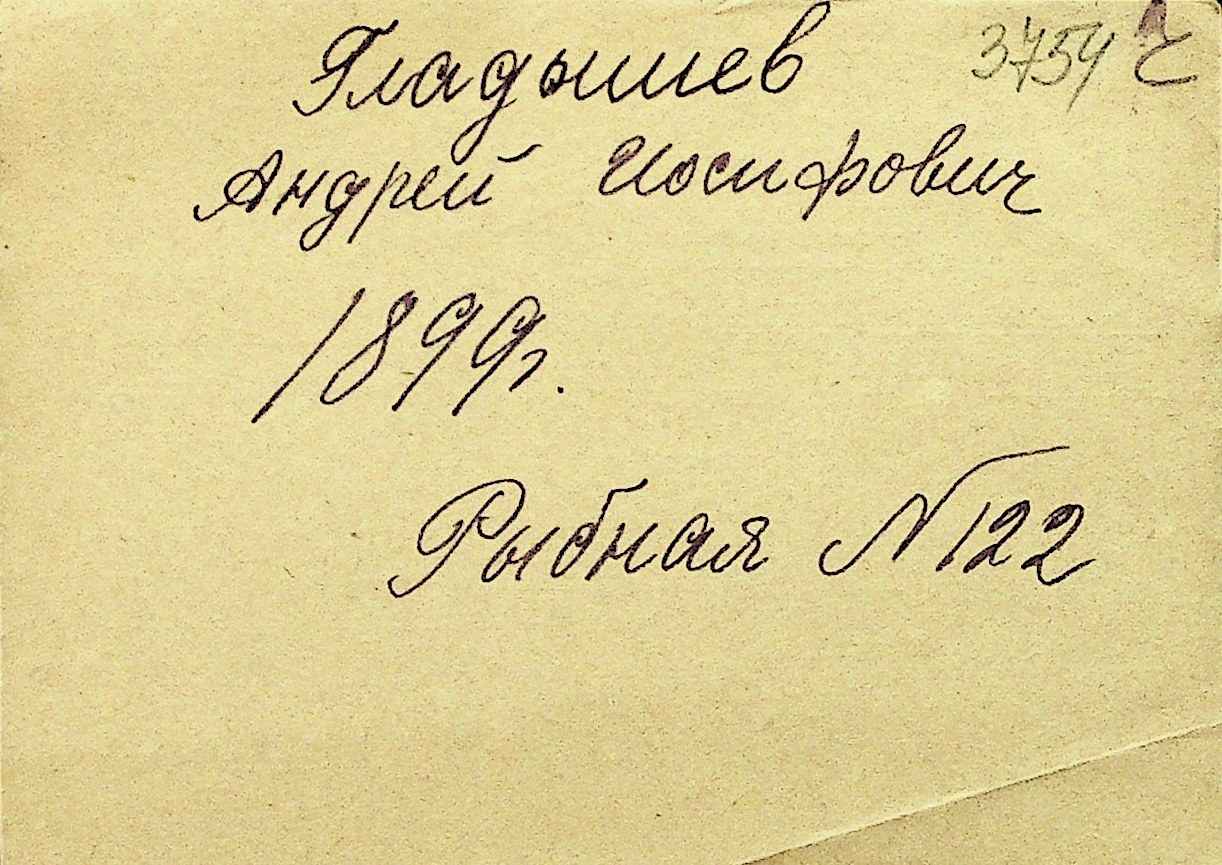 Гладышев 3754
Андрей Иосифович
1899г.
Рыбная №122